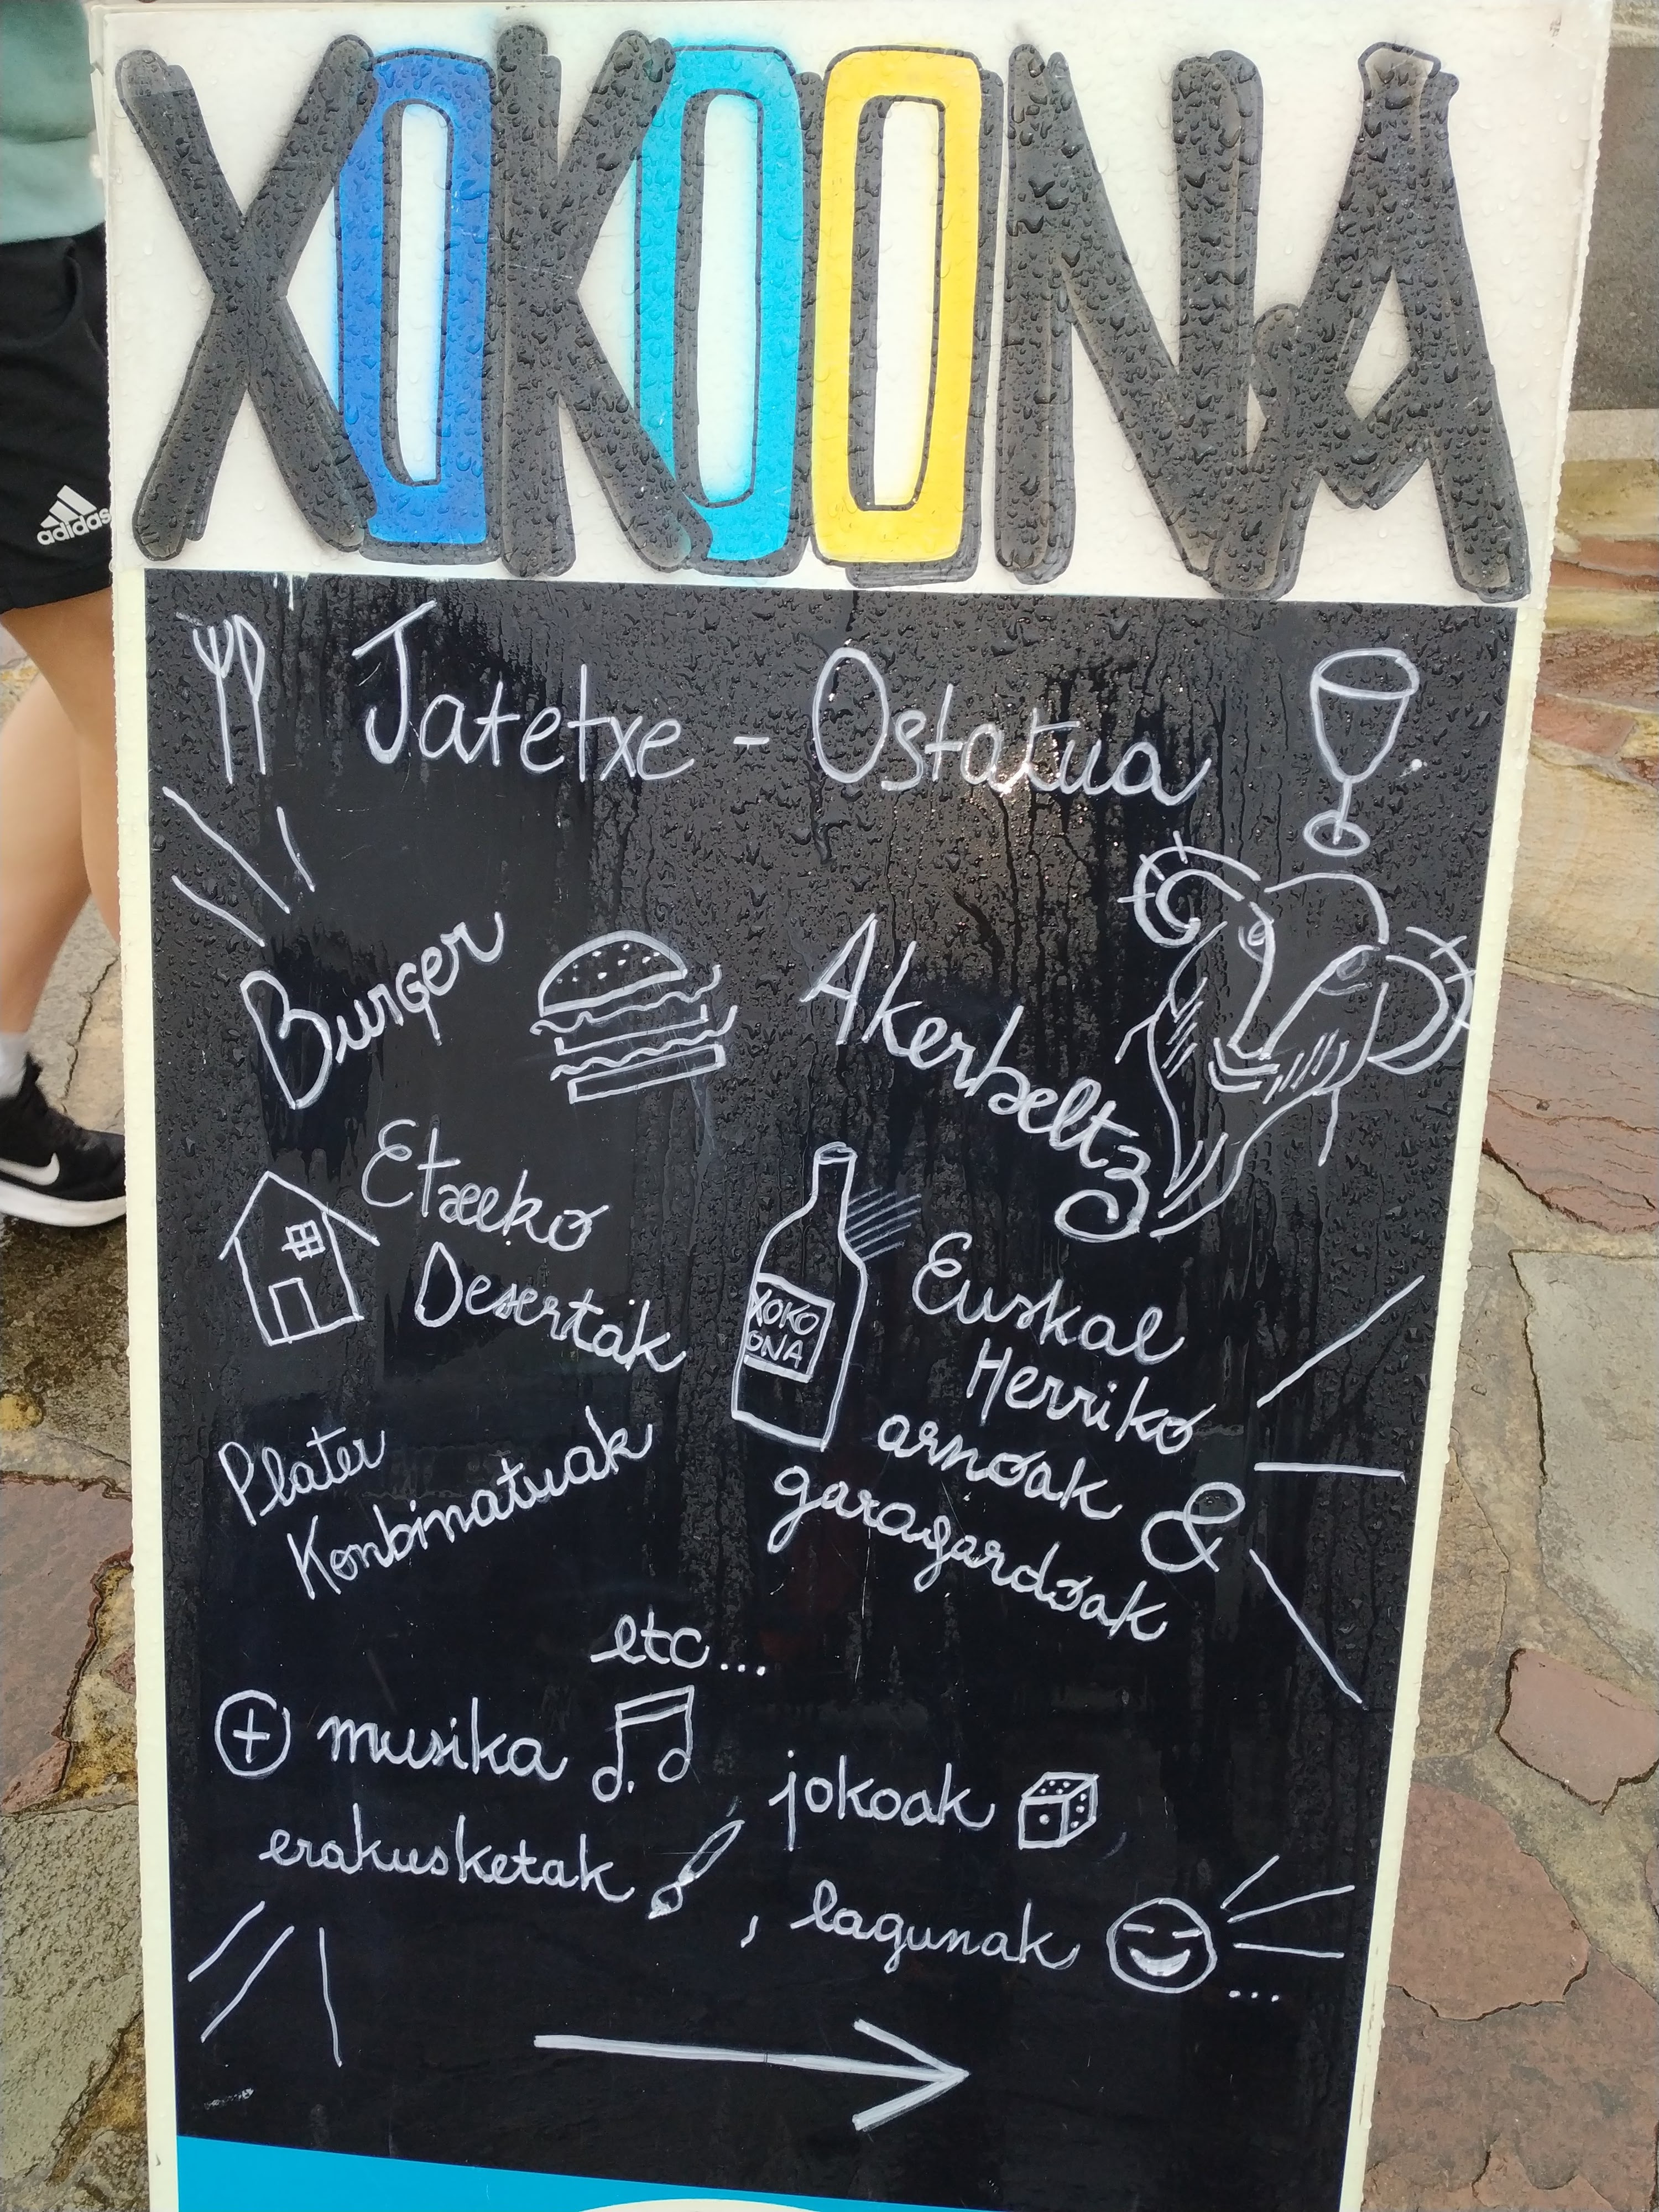 XOKOONA
adidas
Jatetxe - Ostatua
Burger
Akerbeltz
Etxeko
Desertak
XOKO
ONA
Euskal
Herriko
arnoak &
garagardoak
Plater
Konbinatuak
etc...
+ musika
jokoak
erakusketak , lagunak ...